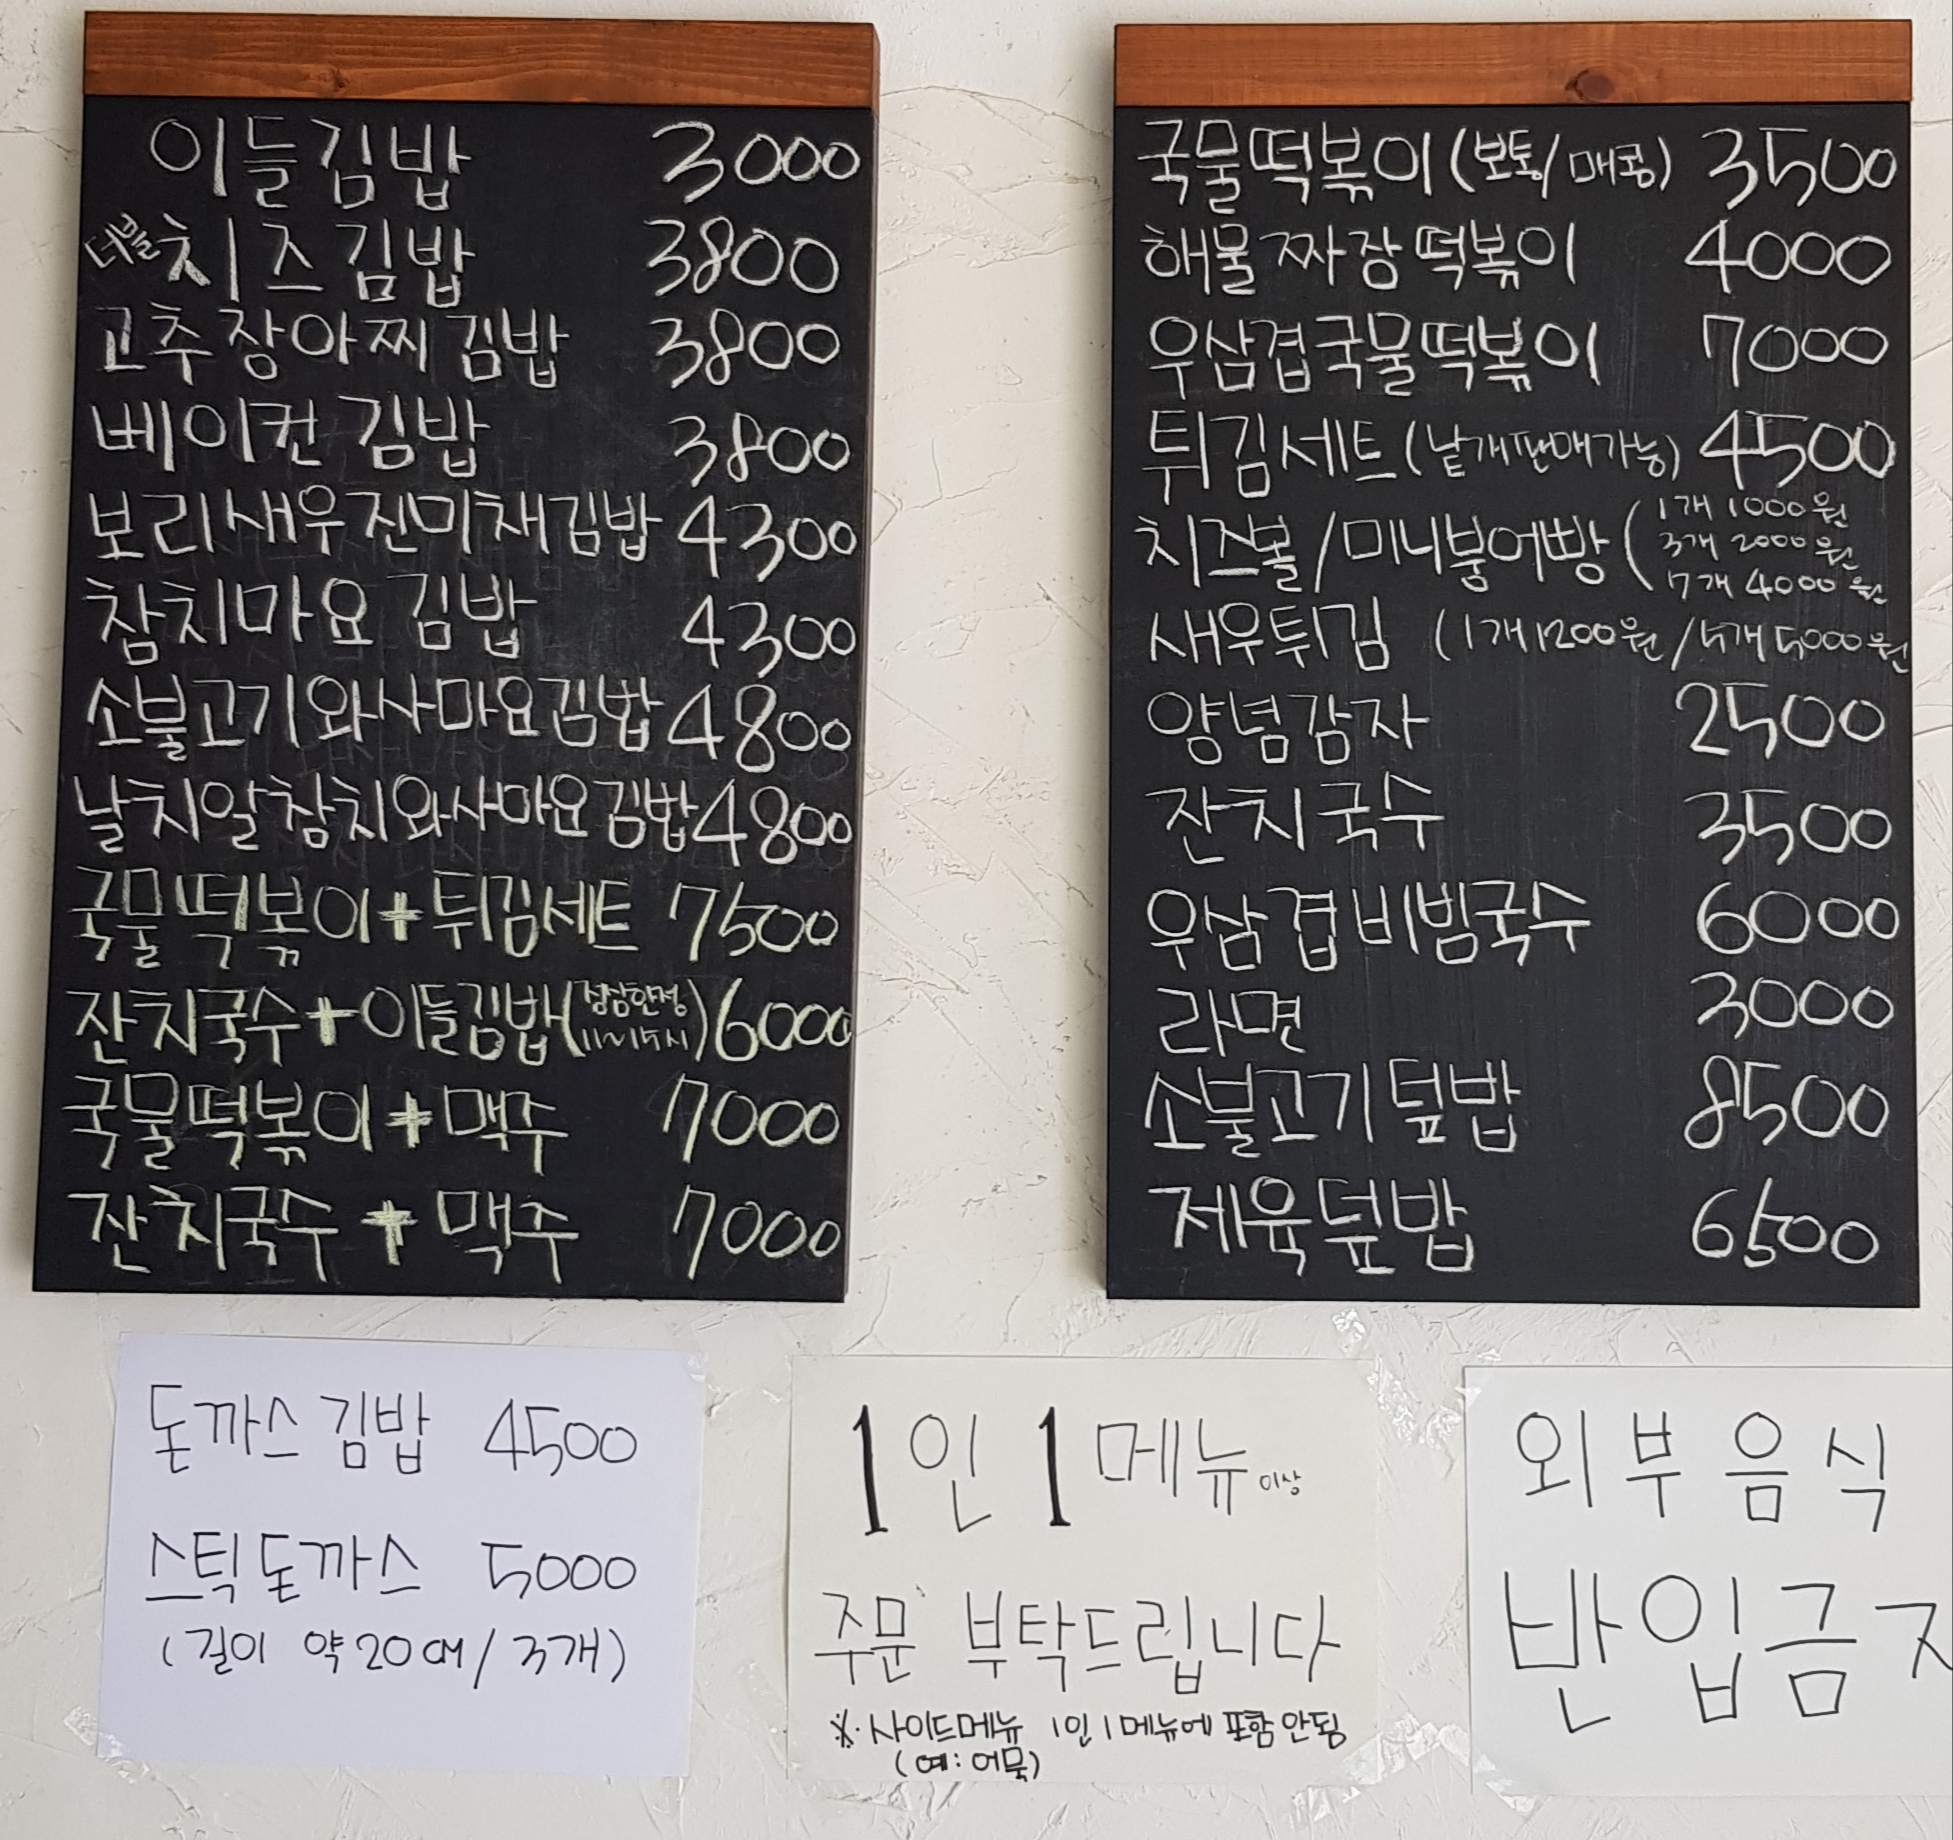 이들김밥 3000
더블치즈김밥 3800
고추장아찌김밥 3800
베이컨김밥 3800
보리새우진미채김밥 4300
참치마요 김밥 4300
소불고기와사마요김밥 4800
날치알참치와사마요김밥 4800
국물떡볶이+튀김세트 7500
잔치국수+이들김밥(점심한정 11~15시) 6000
국물떡볶이+맥주 7000
잔치국수+맥주 7000
국물떡볶이(보통/매콤) 3500
해물짜장떡볶이 4000
우삼겹국물떡볶이 7000
튀김세트(낱개판매가능) 4500
치즈볼/미니붕어빵 (1개 1000원
3개 2000원
7개 4000원
새우튀김 (1개1200원/5개5,000원
양념감자 2500
잔치국수 3500
우삼겹비빔국수 6000
라면 3000
소불고기덮밥 8500
제육덮밥 6500
돈까스김밥 4500
스틱돈까스 5000
(길이 약20cm/3개)
1인 1메뉴 이상
주문 부탁드립니다
※·사이드메뉴 1인1메뉴에 포함안됨
(예:어묵)
외부음식
반입금